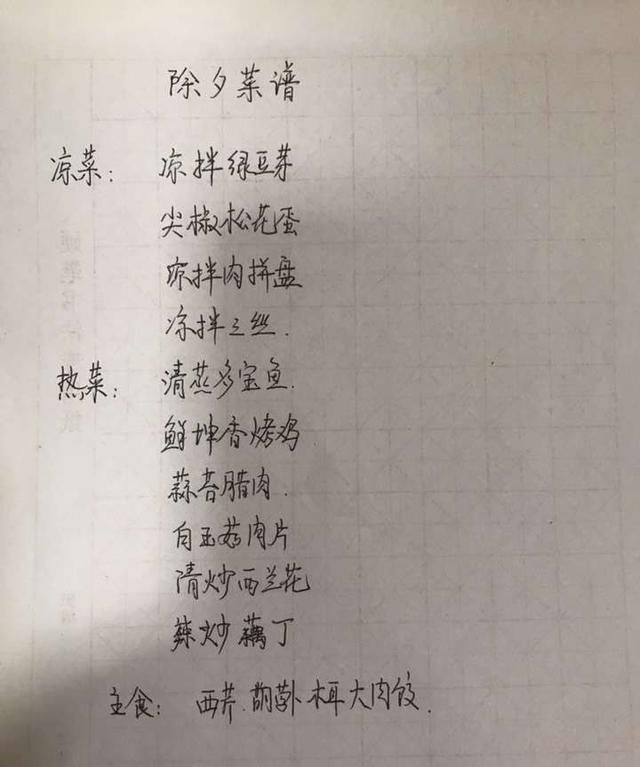 除夕菜谱
凉菜： 凉拌绿豆芽
尖椒松花蛋
凉拌肉拼盘
凉拌三丝.
热菜： 清蒸多宝鱼.
鲜坤香烤鸡
蒜苔腊肉.
白玉菇肉片
清炒西兰花
辣炒藕丁
主食： 西芹.胡萝卜.木耳大肉饺.